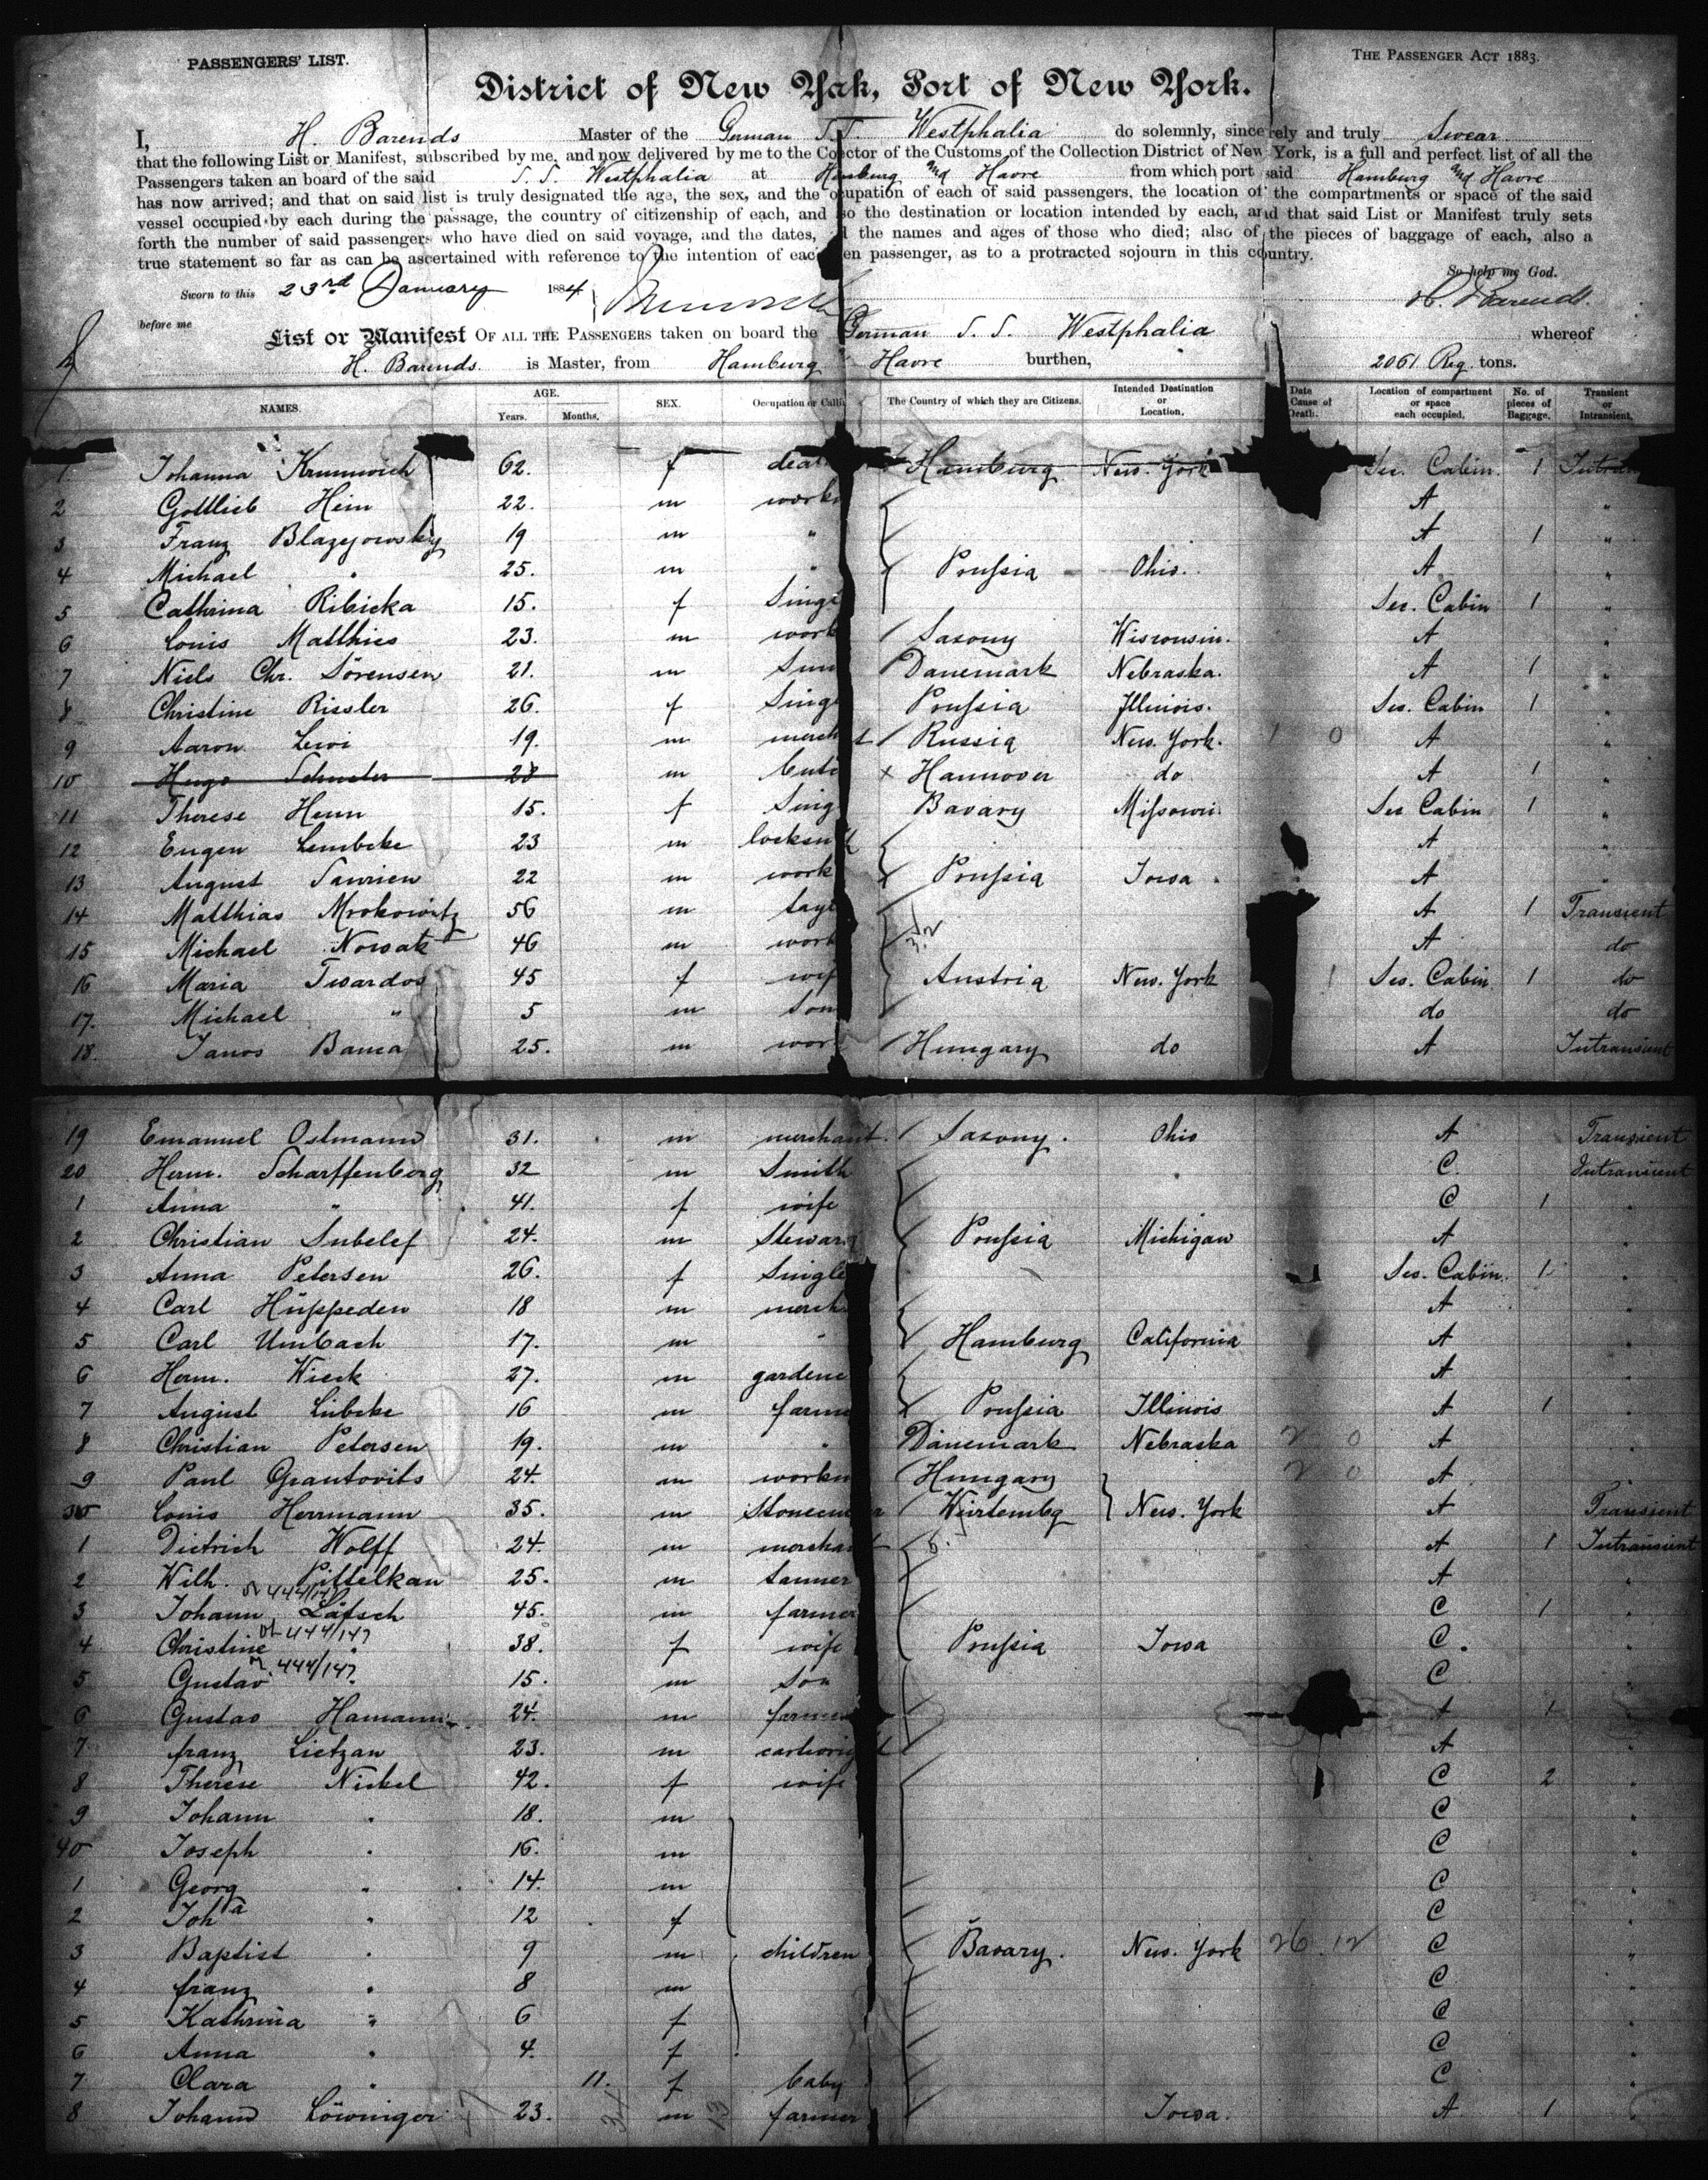 PASSENGERS' LIST.
THE PASSENGER ACT 1883.
District of New York, Port of New York.
I, H. Barends Master of the German S.S. Westphalia do solemnly, sincerely and truly Swear
that the following List or Manifest, subscribed by me, and now delivered by me to the Co ector of the Customs of the Collection District of New York, is a full and perfect list of all the
Passengers taken an board of the said S. S. Westphalia at Hamburg and Havre from which port said Hamburg and Havre
has now arrived; and that on said list is truly designated the age, the sex, and the o cupation of each of said passengers, the location of the compartments or space of the said
vessel occupied by each during the passage, the country of citizenship of each, and so the destination or location intended by each, and that said List or Manifest truly sets
forth the number of said passengers who have died on said voyage, and the dates, the names and ages of those who died; also of the pieces of baggage of each, also a
true statement so far as can be ascertained with reference to the intention of eac en passenger, as to a protracted sojourn in this country.
So help me God.
Sworn to this 23rd January 1884 H. Barends.
before me
List or Manifest OF ALL THE PASSENGERS taken on board the German S. S. Westphalia whereof
H. Barends. is Master, from Hamburg Havre burthen, 2061 Reg. tons.
NAMES. AGE. Years. Months. SEX. Occupation or Calli The Country of which they are Citizens. Intended Destination or Location. Date Cause of Death. Location of compartment or space each occupied. No. of pieces of Baggage. Transient or Intransient.
1 Johanna 62. f Hamburg New York Sec. Cabin. 1
2 Gottlieb Hein 22. m work A "
3 Franz Blazejowsky 19 m " A 1 "
4 Michael " 25. m " Prussia Ohio. A "
5 Cathrina Ribicka 15. f Singl Sec. Cabin 1 "
6 Louis Matthies 23. m work Saxony Wisconsin. A "
7 Niels Chr. Sörensen 21. m Danemark Nebraska. A 1 "
8 Christine Rissler 26. f Sing Prussia Illinois. Sec. Cabin 1 "
9 Aaron Lewi 19. m merch t Russia New York. 1 0 A "
10 Hugo Schuster 28 m x Hannover do A 1 "
11 Therese Henn 15. f Sing Bavary Missouri Sec Cabin 1 "
12 Eugen Lembcke 23 m locksm A "
13 August Taurien 22 m work Prussia Iowa. A "
14 Matthias Mrokowitz 56 m A 1 Transient
15 Michael Nowak 46 m work A do
16 Maria Twardos 45 f wif Austria New York 1 Sec. Cabin 1 do
17. Michael " 5 m son do do
18. Janos Banca 25. m wor Hungary do A Intransient
19 Emanuel Ostmann 31. m merchant. Saxony. Ohio A Transient
20 Herm. Scharffenberg 32 m Smith C. Intransient
1 Anna " 41. f wife C 1 "
2 Christian 24. m Steward Prussia Michigan A "
3 Anna Petersen 26. f Single Sec. Cabin. 1 "
4 Carl Hüppeden 18 m merch A "
5 Carl Umbach 17. m " Hamburg California A "
6 Herm. Wieck 27. m gardene A "
7 August Lübcke 16 m farme Prussia Illinois A 1 "
8 Christian Petersen 19. m " Dänemark Nebraska 2 0 A "
9 Paul Grantovits 24. m workm Hungary 2 0 A "
30 Louis Herrmann 35. m Würtembg New York A Transient
1 Dietrich Wolff 24. m merchant 6. A 1 Intransient
2 Wilh. Pittelkau 25. m tanner A "
444/147
3 Johann Lätsch 45. m farmer C 1 "
444/147
4 Christine " 38. f wife Prussia Iowa C. "
444/147
5 Gustav 15. m son C "
6 Gustav Hamann 24. m farmer A 1 "
7 franz Lietzan 23. m A "
8 Therese Nickel 42. f wife C 2 "
9 Johann " 18. m C "
40 Joseph " 16. m C "
1 Georg " 14. m C "
2 Joha " 12 f C "
3 Baptist " 9 m children Bavary. New York 26 12 C "
4 franz " 8 m C "
5 Kathrina " 6 f C "
6 Anna " 4. f C "
7 Clara " 11. f baby C "
8 Johann Löwniger 23. m farmer Iowa. A 1 "